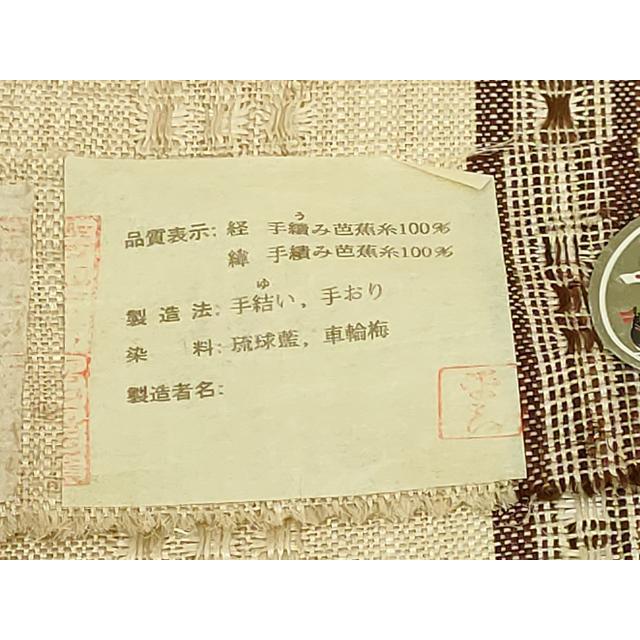 品質表示: 経 手績み芭蕉糸100%
緯 手績み芭蕉糸100%
製造法: 手結い, 手おり
染 料: 琉球藍, 車輪梅
製造者名: